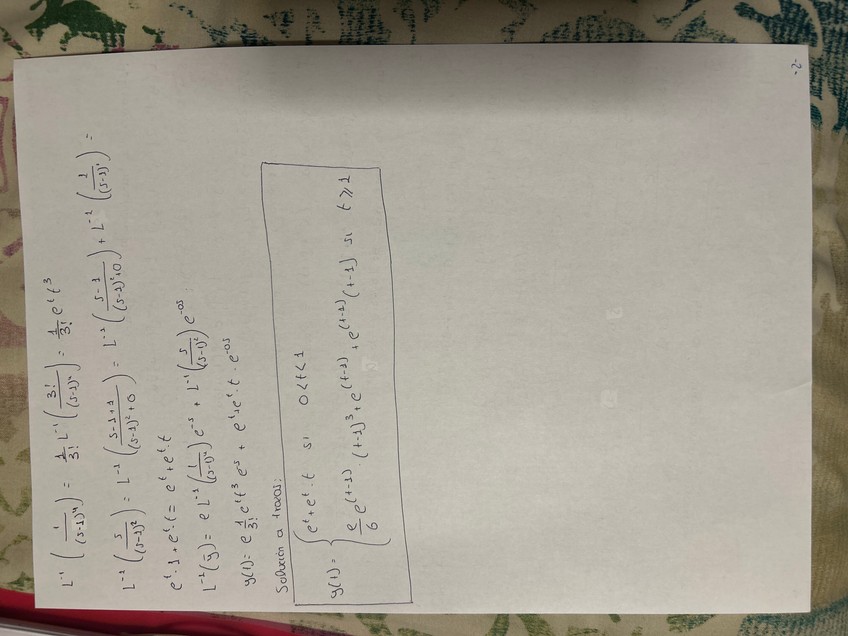 L⁻¹ (1/(s-1)⁴) = 1/3! L⁻¹ (3!/(s-1)⁴) = 1/3! eᵗ t³
L⁻¹ (s/(s-1)²) = L⁻¹ (s-1+1/(s-1)²+0) = L⁻¹ (s-1/(s-1)²+0) + L⁻¹ (1/(s-1)²) =
eᵗ·1 + eᵗ·t = eᵗ + eᵗ·t
L⁻¹(ȳ) = e L⁻¹ (1/(s-1)⁴) e⁻ˢ + L⁻¹ (s/(s-1)²) e⁻⁰ˢ :
y(t) = e 1/3! eᵗ t³ e⁻ˢ + eᵗ + eᵗ·t · e⁻⁰ˢ
Solución a trozos:
y(t) = { eᵗ + eᵗ·t si 0<t<1
e/6 e^(t-1) · (t-1)³ + e^(t-1) + e^(t-1) (t-1) si t ≥ 1
-2-